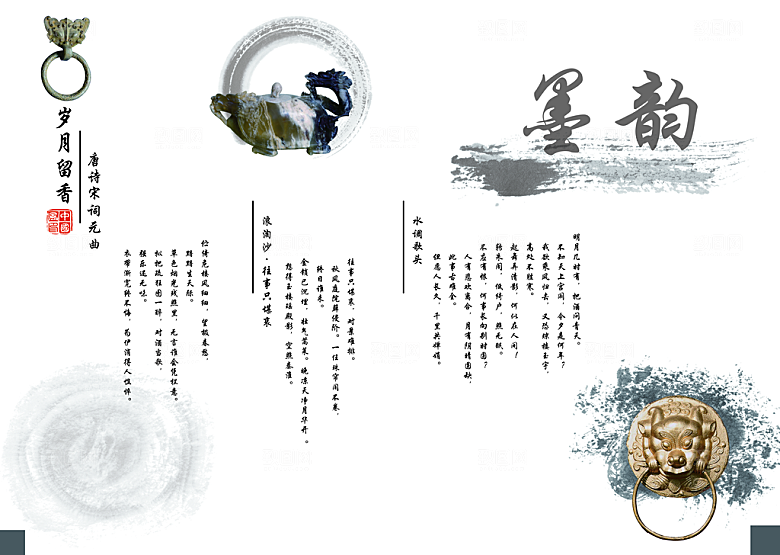 墨韵
明月几时有，把酒问青天。
不知天上宫阙，今夕是何年？
我欲乘风归去，又恐琼楼玉宇，
高处不胜寒。
起舞弄清影，何似在人间！
转朱阁，低绮户，照无眠。
不应有恨，何事长向别时圆？
人有悲欢离合，月有阴晴圆缺，
此事古难全。
但愿人长久，千里共婵娟。
水调歌头
往事只堪哀，对景难排。
秋风庭院藓侵阶。一任珠帘闲不卷，
终日谁来。
金锁已沉埋，壮气蒿莱。晚凉天净月华开。
想得玉楼瑶殿影，空照秦淮。
浪淘沙·往事只堪哀
伫倚危楼风细细，望极春愁，
黯黯生天际。
草色烟光残照里，无言谁会凭栏意。
拟把疏狂图一醉，对酒当歌，
强乐还无味。
衣带渐宽终不悔，为伊消得人憔悴。
唐诗宋词元曲
岁月留香
中国